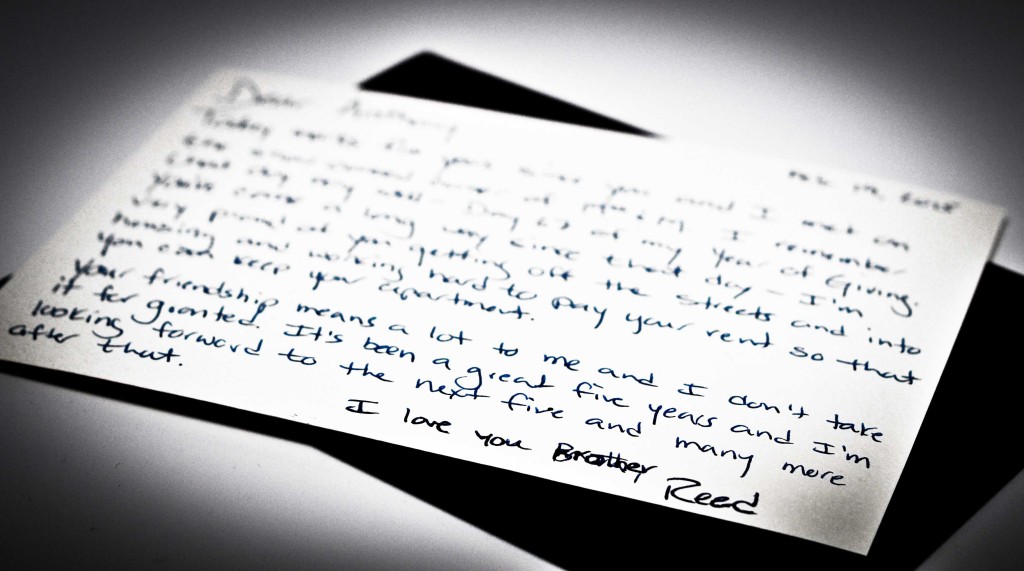 Dear Anthony
Today five years since you and I met on
the corner of I remember
that day very well - Day 67 of my Year of Giving.
You've come a long way since that day - I'm
very proud of you getting off the streets and into
housing and working hard to pay your rent so that
you can keep your apartment.
Your friendship means a lot to me and I don't take
it for granted. It's been a great five years and I'm
looking forward to the next five and many more
after that.
I love you Brother
Reed